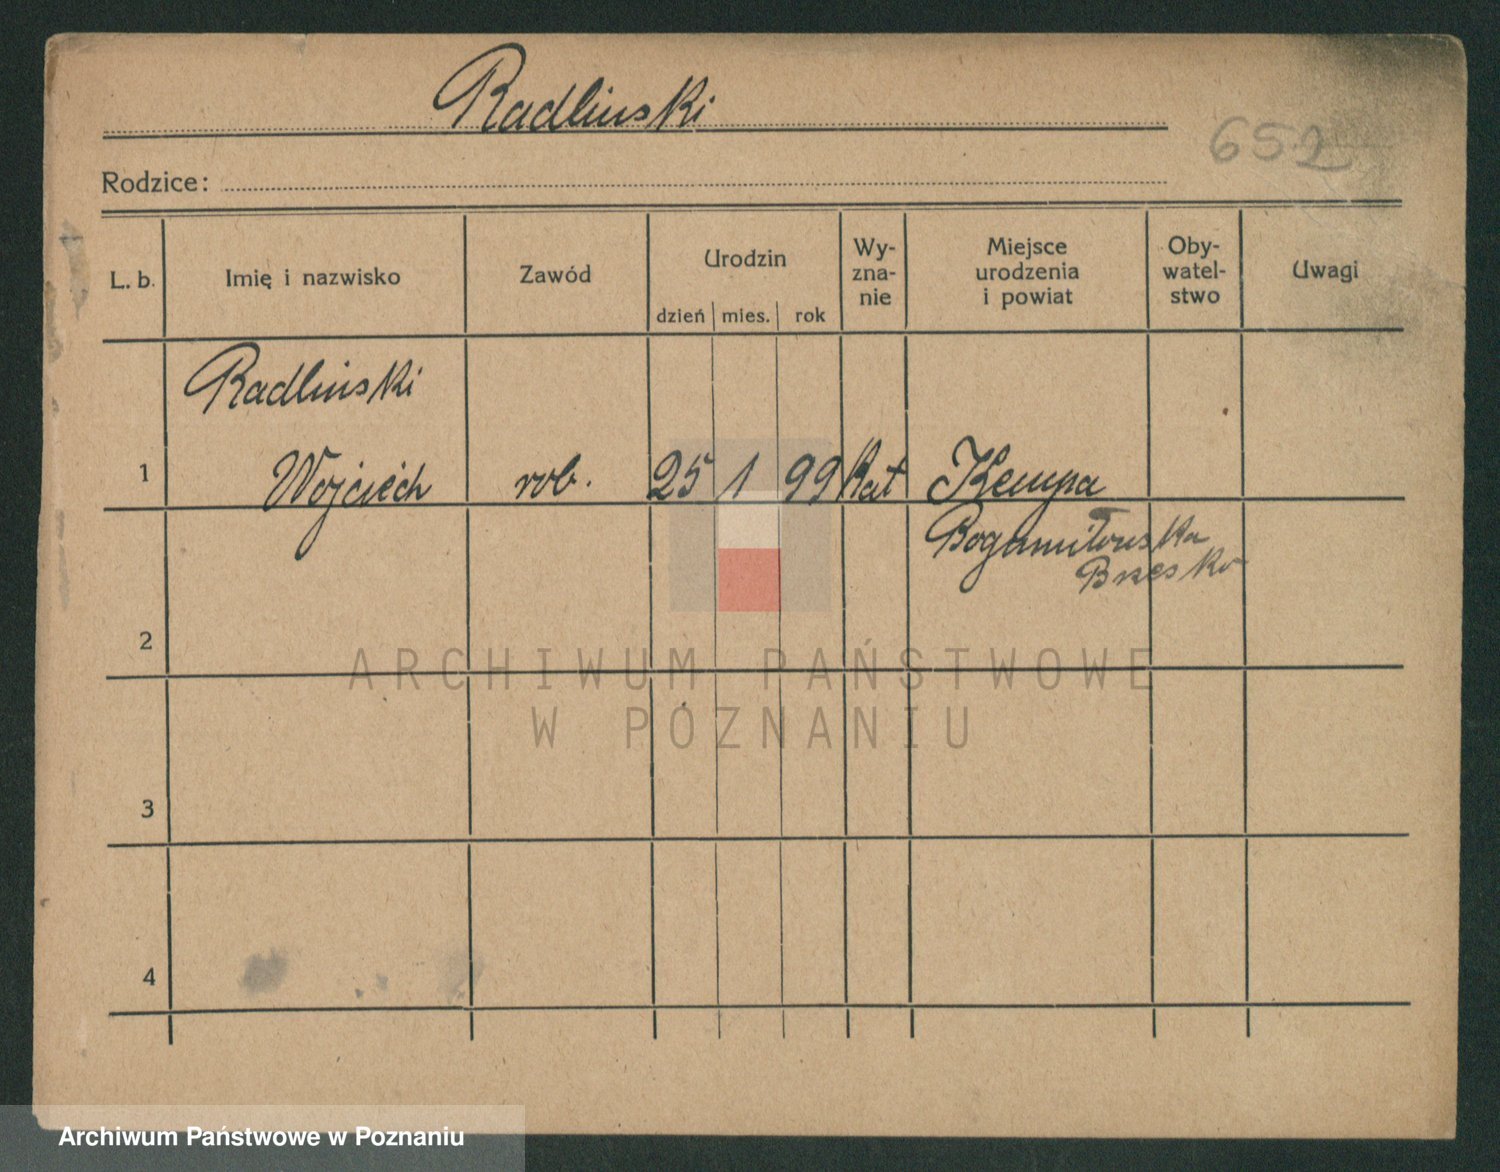 Radlinski
652
Rodzice:
L. b. Imię i nazwisko Zawód Urodzin dzień mies. rok Wy-zna-nie Miejsce urodzenia i powiat Oby-watel-stwo Uwagi
Radlinski
1 Wojciech rob. 25 1 99 kat Kempa
Bogumiłowska
Brzesko
2
ARCHIWUM PAŃSTWOWE
W POZNANIU
3
4
Archiwum Państwowe w Poznaniu